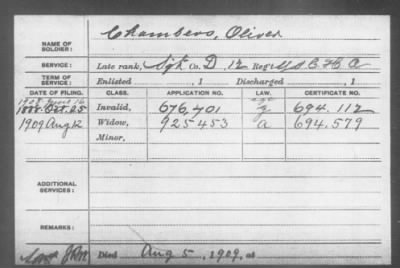 Chambers, Oliver
NAME OF SOLDIER:
SERVICE: Late rank, Sgt Co. D, 12 Reg't U.S.C.H.A
TERM OF SERVICE: Enlisted , 1 Discharged , 1
DATE OF FILING. CLASS. APPLICATION NO. LAW. CERTIFICATE NO.
age
1888 Oct. 25 Invalid, 676,401 g 694.112
1909 Aug 12 Widow, 925453 a 694.579
Minor,
ADDITIONAL SERVICES:
REMARKS:
Died Aug 5, 1909, at